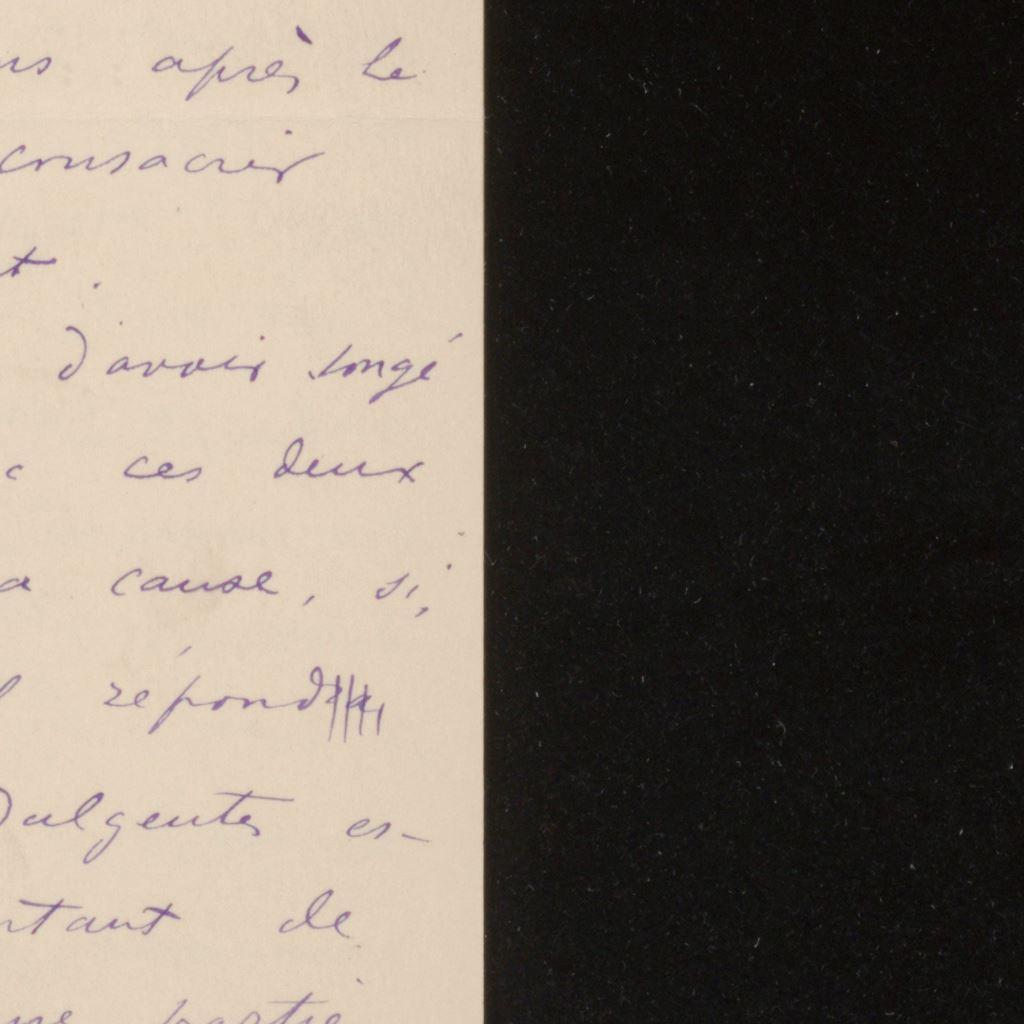 après le
consacrer
d'avoir songé
ces deux
cause, si,
répond
dulgentes es-
tant de
partie